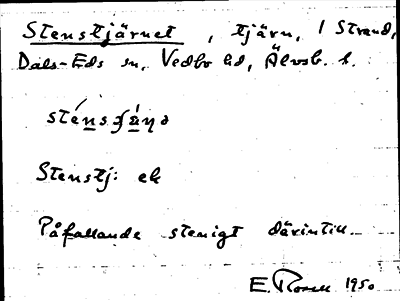 Stenstjärnet, tjärn, i Strand,
Dals-Eds sn, Vedbo hd, Älvsb. l.
Stenstj: ek
Påfallande stenigt därintill.
E. Rosell 1950